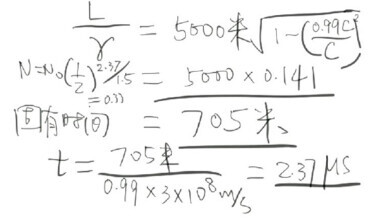 L/γ = 5000米√(1-(0.99C/C)²)
N=N₀(1/2)^(2.37/1.5) = 5000×0.141
=0.33
固有時間 = 705米
t = 705米/(0.99×3×10⁸m/s) = 2.37μs